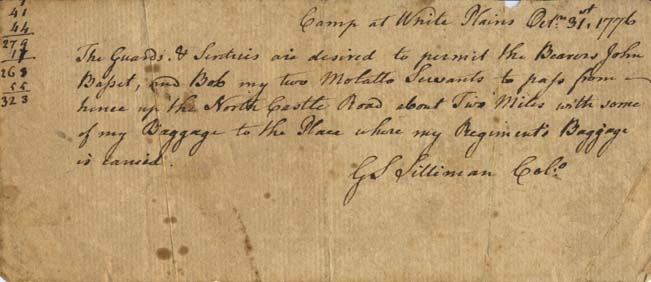 41
44
279
17
263
55
323
Camp at White Plains Octr. 31st, 1776
The Guards & Sentries are desired to permit the Bearers John
Baset, and Bob my two Molatto Servants to pass from
hence up the North Castle Road about Two Miles with some
of my Baggage to the Place where my Regiment's Baggage
is carried.
GS Silliman Colo.